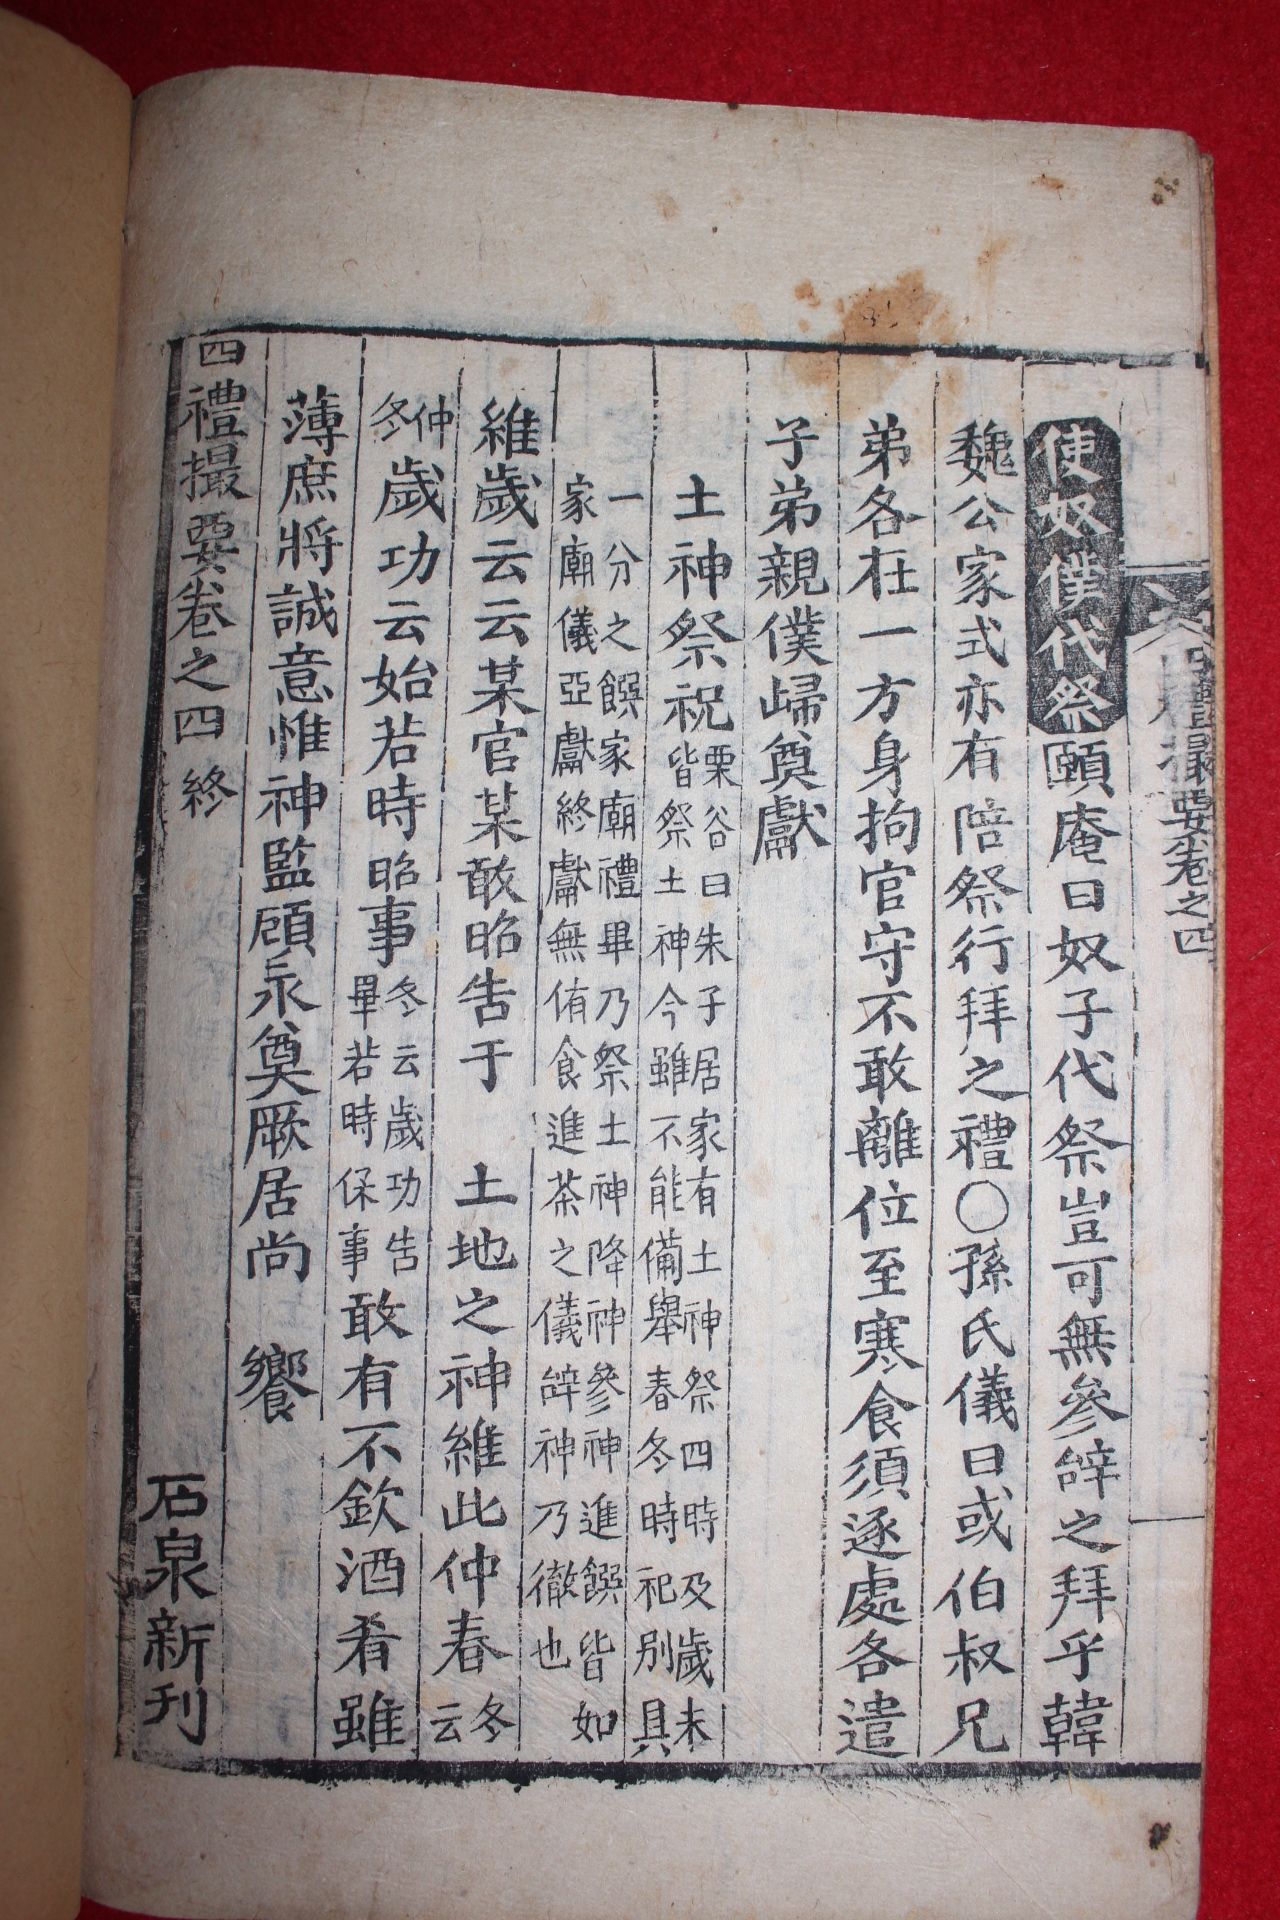 四禮撮要卷之四
使奴僕代祭頤庵曰奴子代祭豈可無參辝之拜乎韓
魏公家式亦有陪祭行拜之禮○孫氏儀曰或伯叔兄
弟各在一方身拘官守不敢離位至寒食須逐處各遣
子弟親僕歸奠獻
土神祭祝
栗谷曰朱子居家有土神祭四時及歲末
皆祭土神今雖不能備舉春冬時祀別具
一分之饌家廟禮畢乃祭土神降神參神進饌皆如
家廟儀亞獻終獻無侑食進茶之儀辝神乃徹也
維歲云云某官某敢昭告于　土地之神維此仲春
冬云
仲冬
歲功云始若時昭事
冬云歲功告
畢若時保事
敢有不欽酒肴雖
薄庶將誠意惟神監顧永奠厥居尚　饗
四禮撮要卷之四　終
石泉新刊